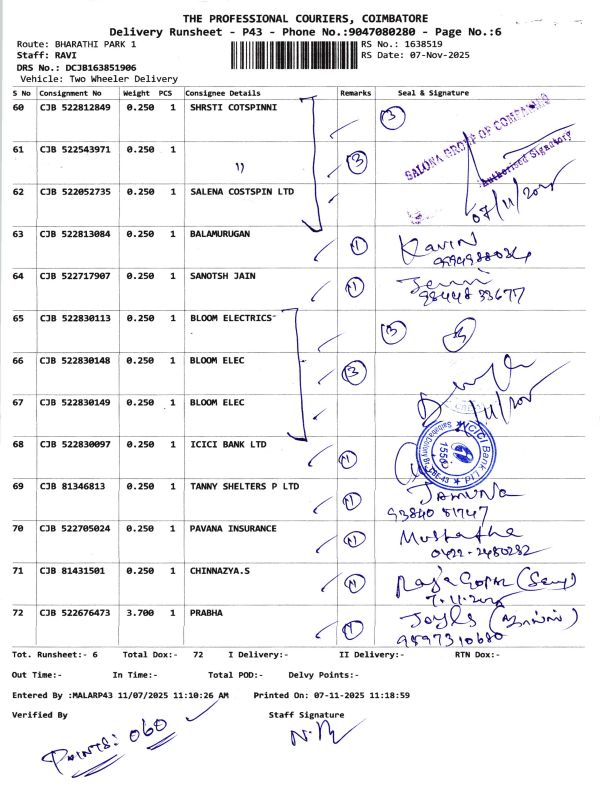 THE PROFESSIONAL COURIERS, COIMBATORE
Delivery Runsheet - P43 - Phone No.:9047080280 - Page No.:6
Route: BHARATHI PARK 1 RS No.: 1638519
Staff: RAVI RS Date: 07-Nov-2025
DRS No.: DCJB163851906
Vehicle: Two Wheeler Delivery
S No Consignment No Weight PCS Consignee Details Remarks Seal & Signature
60 CJB 522812849 0.250 1 SHRSTI COTSPINNI 3
SALONA GROUP OF COMPANIES
Authorised Signatory
61 CJB 522543971 0.250 1 3
62 CJB 522052735 0.250 1 SALENA COSTSPIN LTD
07/11/2025
63 CJB 522813084 0.250 1 BALAMURUGAN N Kavin
64 CJB 522717907 0.250 1 SANOTSH JAIN N
98448 33677
65 CJB 522830113 0.250 1 BLOOM ELECTRICS 3
66 CJB 522830148 0.250 1 BLOOM ELEC 3
67 CJB 522830149 0.250 1 BLOOM ELEC
68 CJB 522830097 0.250 1 ICICI BANK LTD N
ICICI Bank Ltd
69 CJB 81346813 0.250 1 TANNY SHELTERS P LTD N JAMUNA
93840 51747
70 CJB 522705024 0.250 1 PAVANA INSURANCE N
0422-2480282
71 CJB 81431501 0.250 1 CHINNAZYA.S N Raja Gopal
7.11.2025
72 CJB 522676473 3.700 1 PRABHA N
9597310680
Tot. Runsheet:- 6 Total Dox:- 72 I Delivery:- II Delivery:- RTN Dox:-
Out Time:- In Time:- Total POD:- Delvy Points:-
Entered By :MALARP43 11/07/2025 11:10:26 AM Printed On: 07-11-2025 11:18:59
Verified By Staff Signature
POINTS: 060